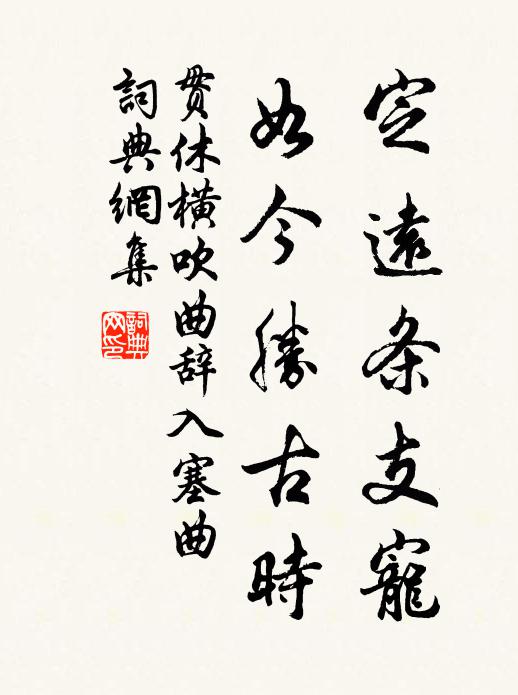 定遠条支寵
如今勝古時
贯休橫吹曲辞入塞曲
詞典網集
詞典网印